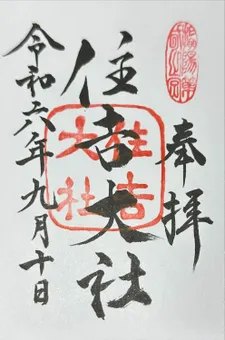 奉拝
住吉大社
住吉大社
令和六年九月十日